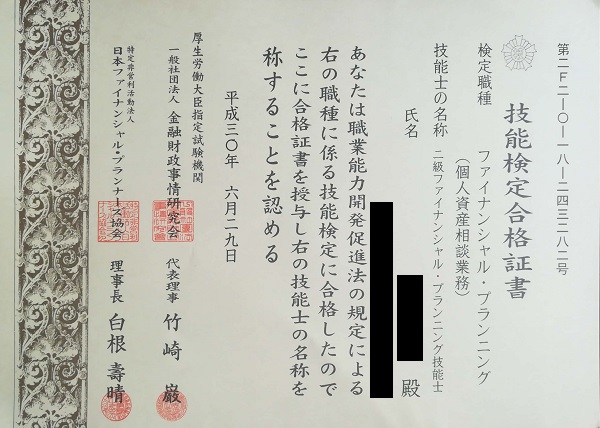 第二F二ー〇ー一八ー二四三二八二号
技能検定合格証書
検定職種　ファイナンシャル・プランニング
（個人資産相談業務）
技能士の名称　二級ファイナンシャル・プランニング技能士
氏名　殿
あなたは職業能力開発促進法の規定による
右の職種に係る技能検定に合格したので
ここに合格証書を授与し右の技能士の名称を
称することを認める
平成三〇年　六月二九日
厚生労働大臣指定試験機関
一般社団法人　金融財政事情研究会　代表理事　竹崎　巌
特定非営利活動法人
日本ファイナンシャル・プランナーズ協会　理事長　白根　壽晴